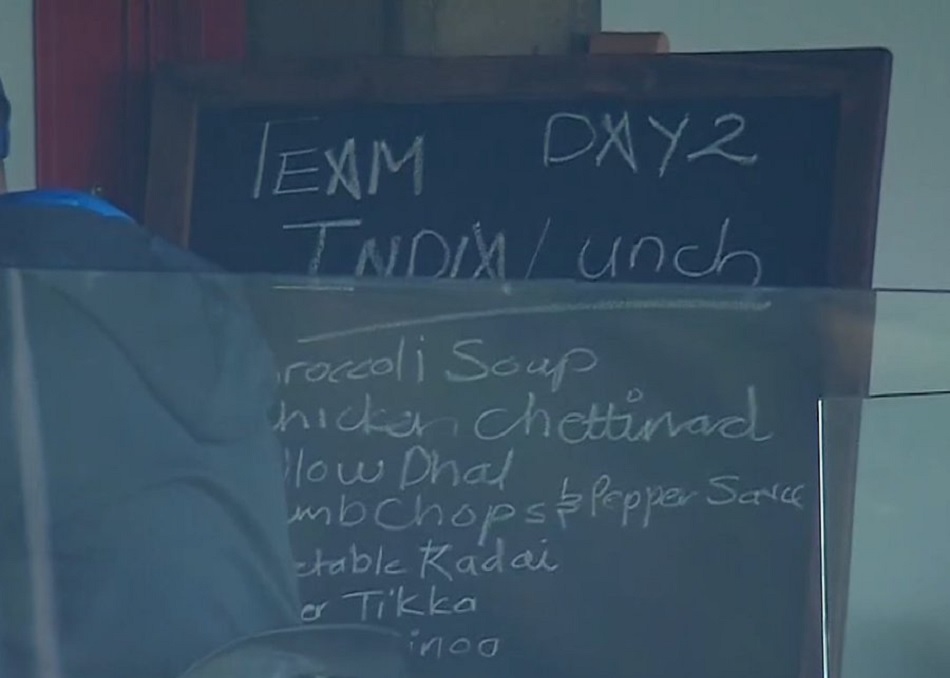 TEAM DAY2
INDIA/ unch
roccoli Soup
hicken Chettinad
llow Dhal
mb Chops & Pepper Sauce
etable Kadai
er Tikka
inoa